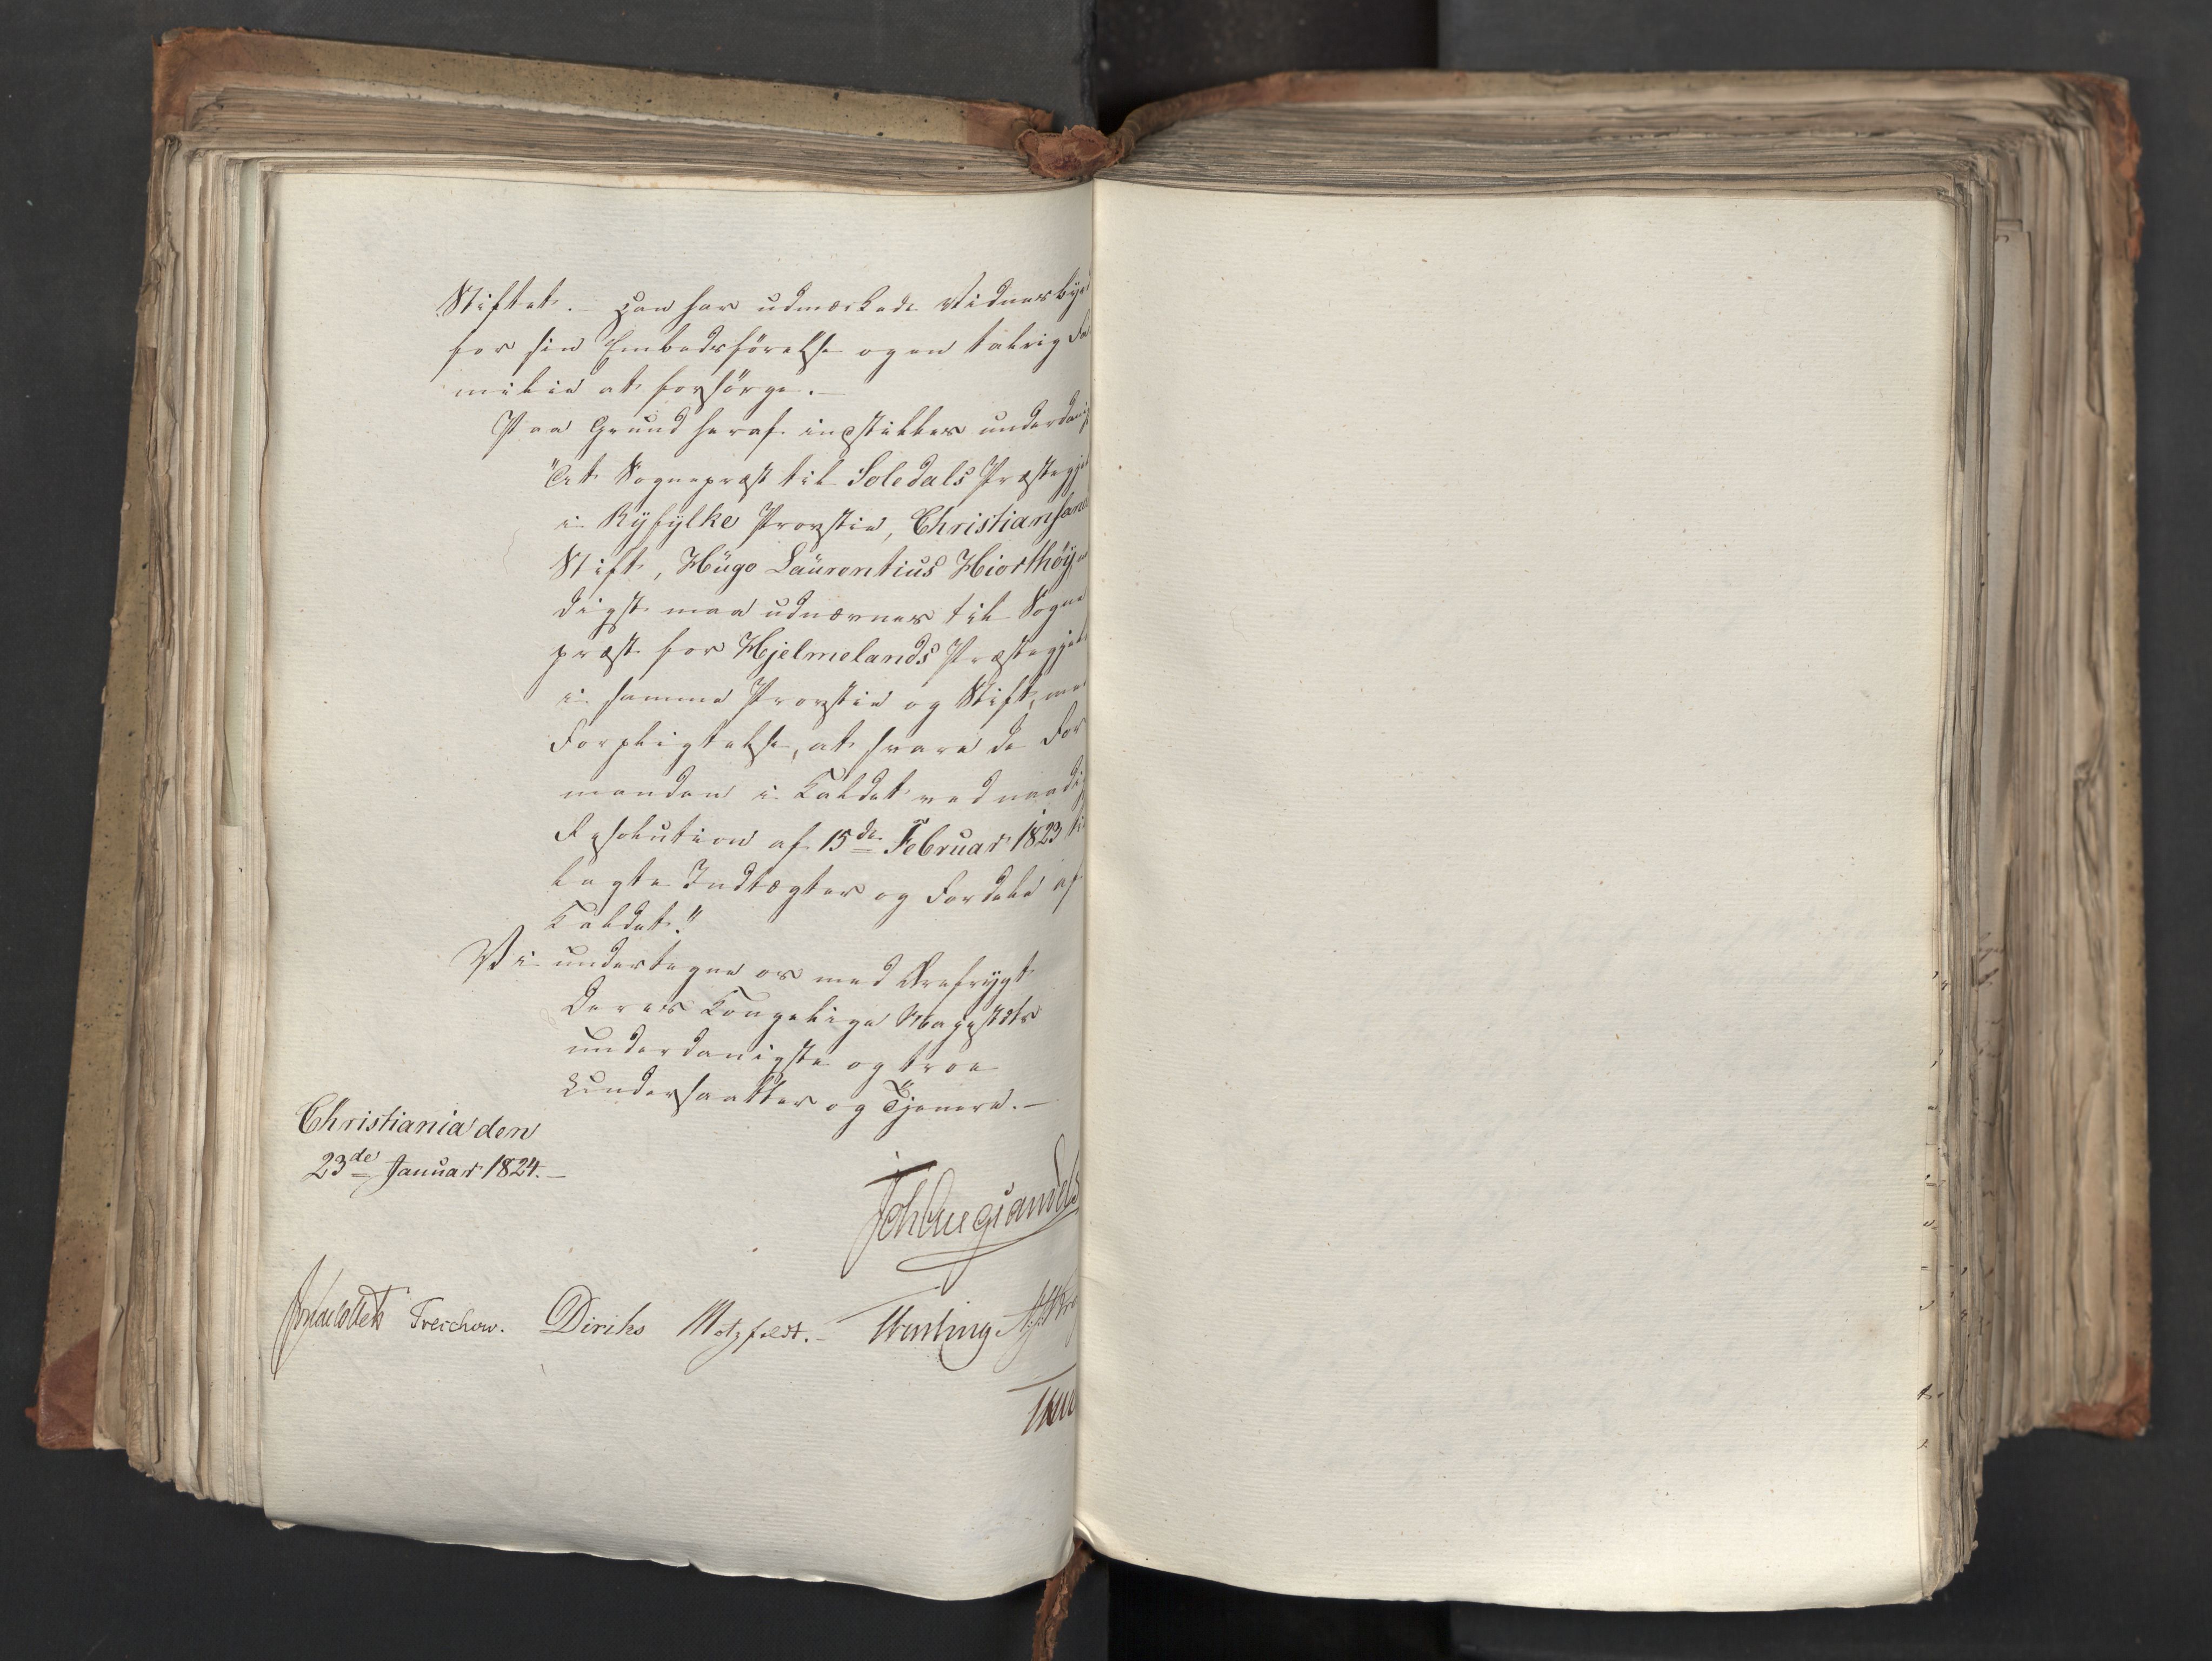 Stiftet. – Han har udmærkede Vidnesbyrd
for sin Embedsførelse og en talrig Fa
milie at forsørge. –
Paa Grund heraf indstilles underdanigst:
"At Sognepræst til Soledals Præstegjeld
i Ryfylke Provstie, Christiansands
Stift, Hügo Laürentius Hiorthöÿ
digst maa udnævnes til Sogne
præst for Hjelmelands Præstegjeld
i samme Provstie og Stift, med
Forpligtelse, at svare de For
manden i Kaldet ved naadigst
Resolution af 15de Februar 1823 til
lagte Indtægter og Fordele af
Kaldet."
Vi undertegne os med Ærefrygt
Deres Kongelige Majestæts
underdanigste og troe
Undersaatter og Tjenere. –
Christiania den
23de Januar 1824. –
Joh Aug Sandels
JonCollett Treschow. Diriks Motzfeldt. – Hersleg